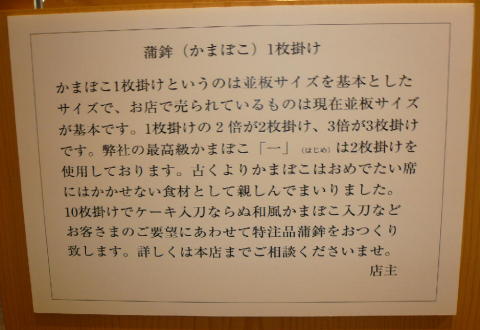 蒲鉾（かまぼこ）1枚掛け
かまぼこ1枚掛けというのは並板サイズを基本とした
サイズで、お店で売られているものは現在並板サイズ
が基本です。1枚掛けの２倍が2枚掛け、3倍が3枚掛け
です。弊社の最高級かまぼこ「一」（はじめ）は2枚掛けを
使用しております。古くよりかまぼこはおめでたい席
にはかかせない食材として親しんでまいりました。
10枚掛けでケーキ入刀ならぬ和風かまぼこ入刀など
お客さまのご要望にあわせて特注品蒲鉾をおつくり
致します。詳しくは本店までご相談くださいませ。
店主